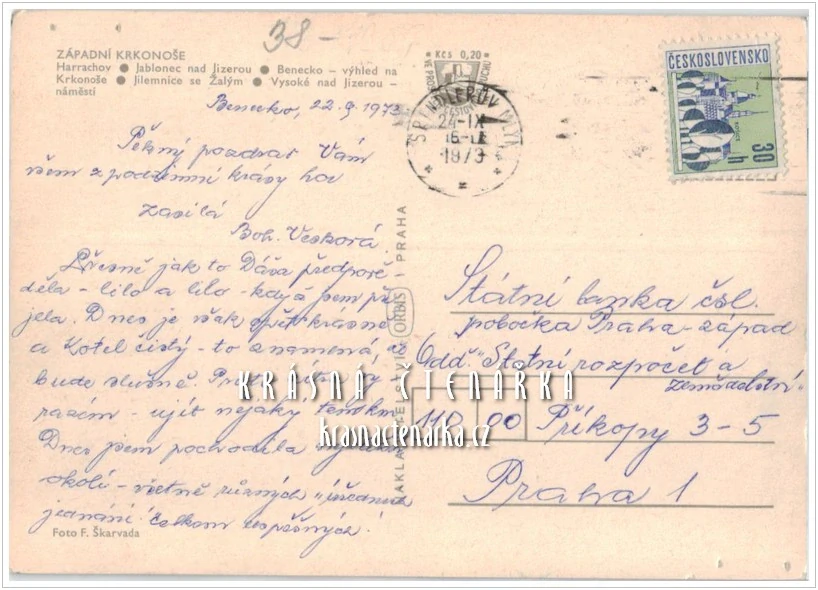 38 –
ZÁPADNÍ KRKONOŠE
Harrachov ● Jablonec nad Jizerou ● Benecko – výhled na
Krkonoše ● Jilemnice se Žalým ● Vysoké nad Jizerou –
náměstí
Benecko, 22.9.1973
Pěkný pozdrav Vám
všem z podzimní krásy hor
zasílá
Boh. Vesková.
Přesně jak to Dáša předpově-
děla - lilo a lilo - když jsem při
jela. Dnes je však opět krásně
a Kotel čistý - to znamená,
bude slušně.
razím - ujít nějaký ten km
Dnes jsem pochodila
okolí - včetně různých "úředních
jednání! Celkem úspěšných!
Foto F. Škarvada
ORBIS PRAHA
Kčs 0,20
ŠPINDLERŮV MLÝN
24.-IX
1973
ČESKOSLOVENSKO
30 h
Státní banka čsl.
pobočka Praha - západ
Odd. "Státní rozpočet a
zemědělství.
110 00 Příkopy 3-5
Praha 1
KRÁSNÁ ČTENÁRKA
krasnactenarka.cz